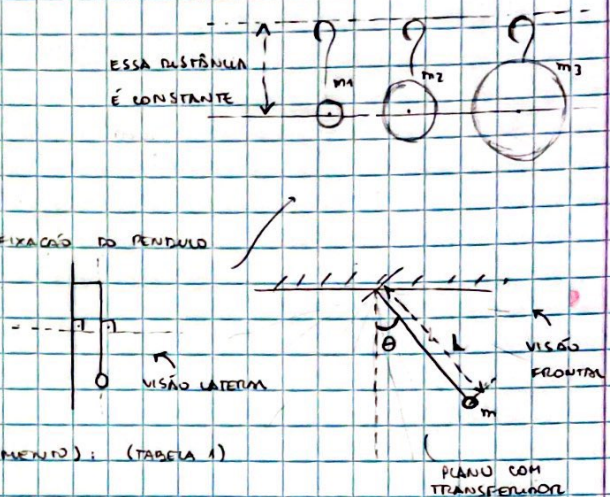 ESSA DISTÂNCIA
É CONSTANTE
m1
m2
m3
FIXAÇÃO DO PENDULO
VISÃO LATERAL
θ
L
m
VISÃO
FRONTAL
MENTO): (TABELA 1)
PLANO COM
TRANSFERIDOR